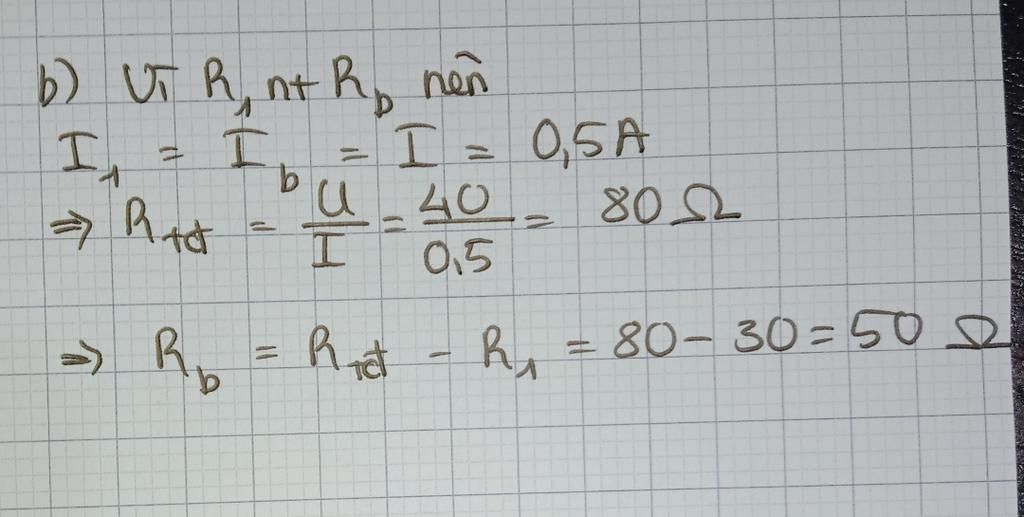 b) Vì R₁ nt R_b nên
I₁ = I_b = I = 0,5A
⇒ R_tđ = U/I = 40/0,5 = 80 Ω
⇒ R_b = R_tđ - R₁ = 80 - 30 = 50 Ω